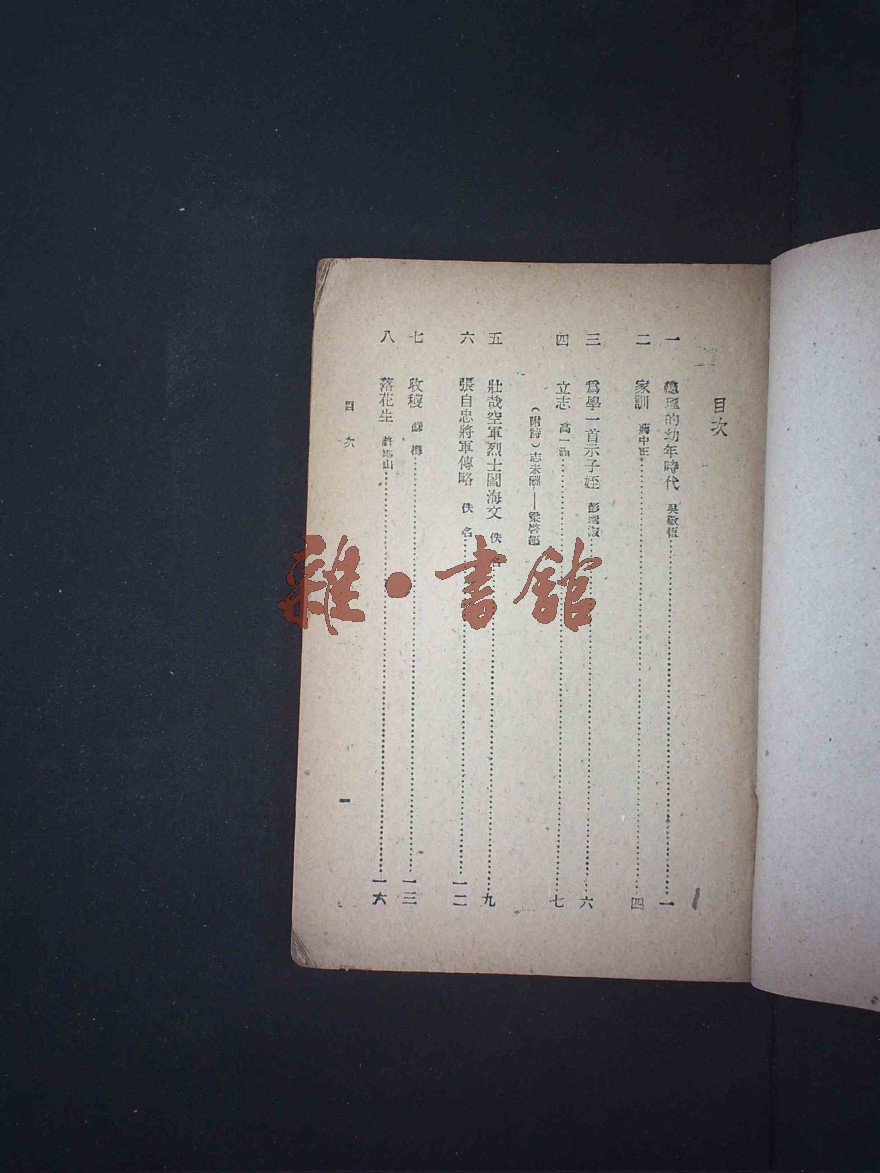 目次
一 總理的幼年時代 吳敬恆 一
二 家訓 蔣中正 四
三 爲學一首示子姪 彭端淑 六
四 立志 高一涵 七
（附詩）志未酬——梁啓超
五 壯哉空軍烈士閻海文 佚名 九
六 張自忠將軍傳略 佚名 一二
七 收穫 蘇梅 一三
八 落花生 許地山 一六
目次 一
雜·書館